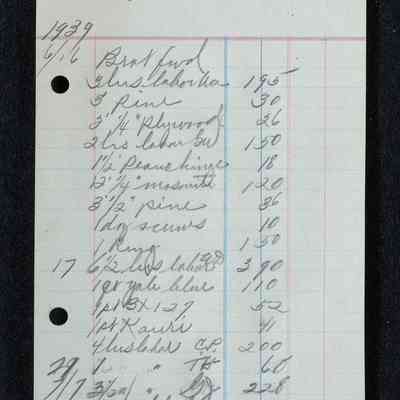 1939
6/16 Brot fwd
3 hrs labor 195
3' pine 30
3' 1/4" Plywood 36
2 hrs labor 150
1 1/2' Piano hinge 18
12' 1/4" masonite 120
3' 1/2" pine 36
1 doz screws 10
1 Ring 150
17 6 1/2 hrs labor 390
1 qt yale blue 110
1 pt 127 52
1 pt Kauri 41
4 hrs labor C.P. 200
1 " " 60
7/17 " " 228